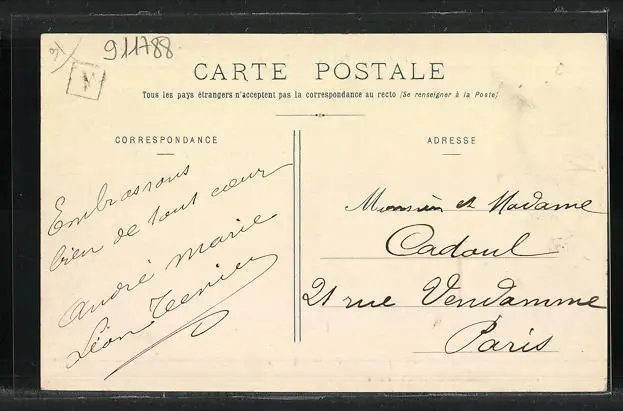 911788
CARTE POSTALE
Tous les pays étrangers n'acceptent pas la correspondance au recto (Se renseigner à la Poste)
CORRESPONDANCE
ADRESSE
Embrassons
bien de tout cœur
André Marie
Léon
Monsieur et Madame
Cadoul
21 rue Vendamme
Paris